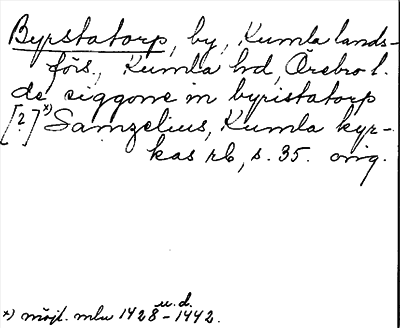 Byrstatorp, by, Kumla lands-
förs., Kumla hd, Örebro l.
de siggone in byristatorp
[?]*) Samzelius, Kumla kyr-
kas rb, s. 35. orig.
u. d.
*) möjl. mlu 1428 - 1442.